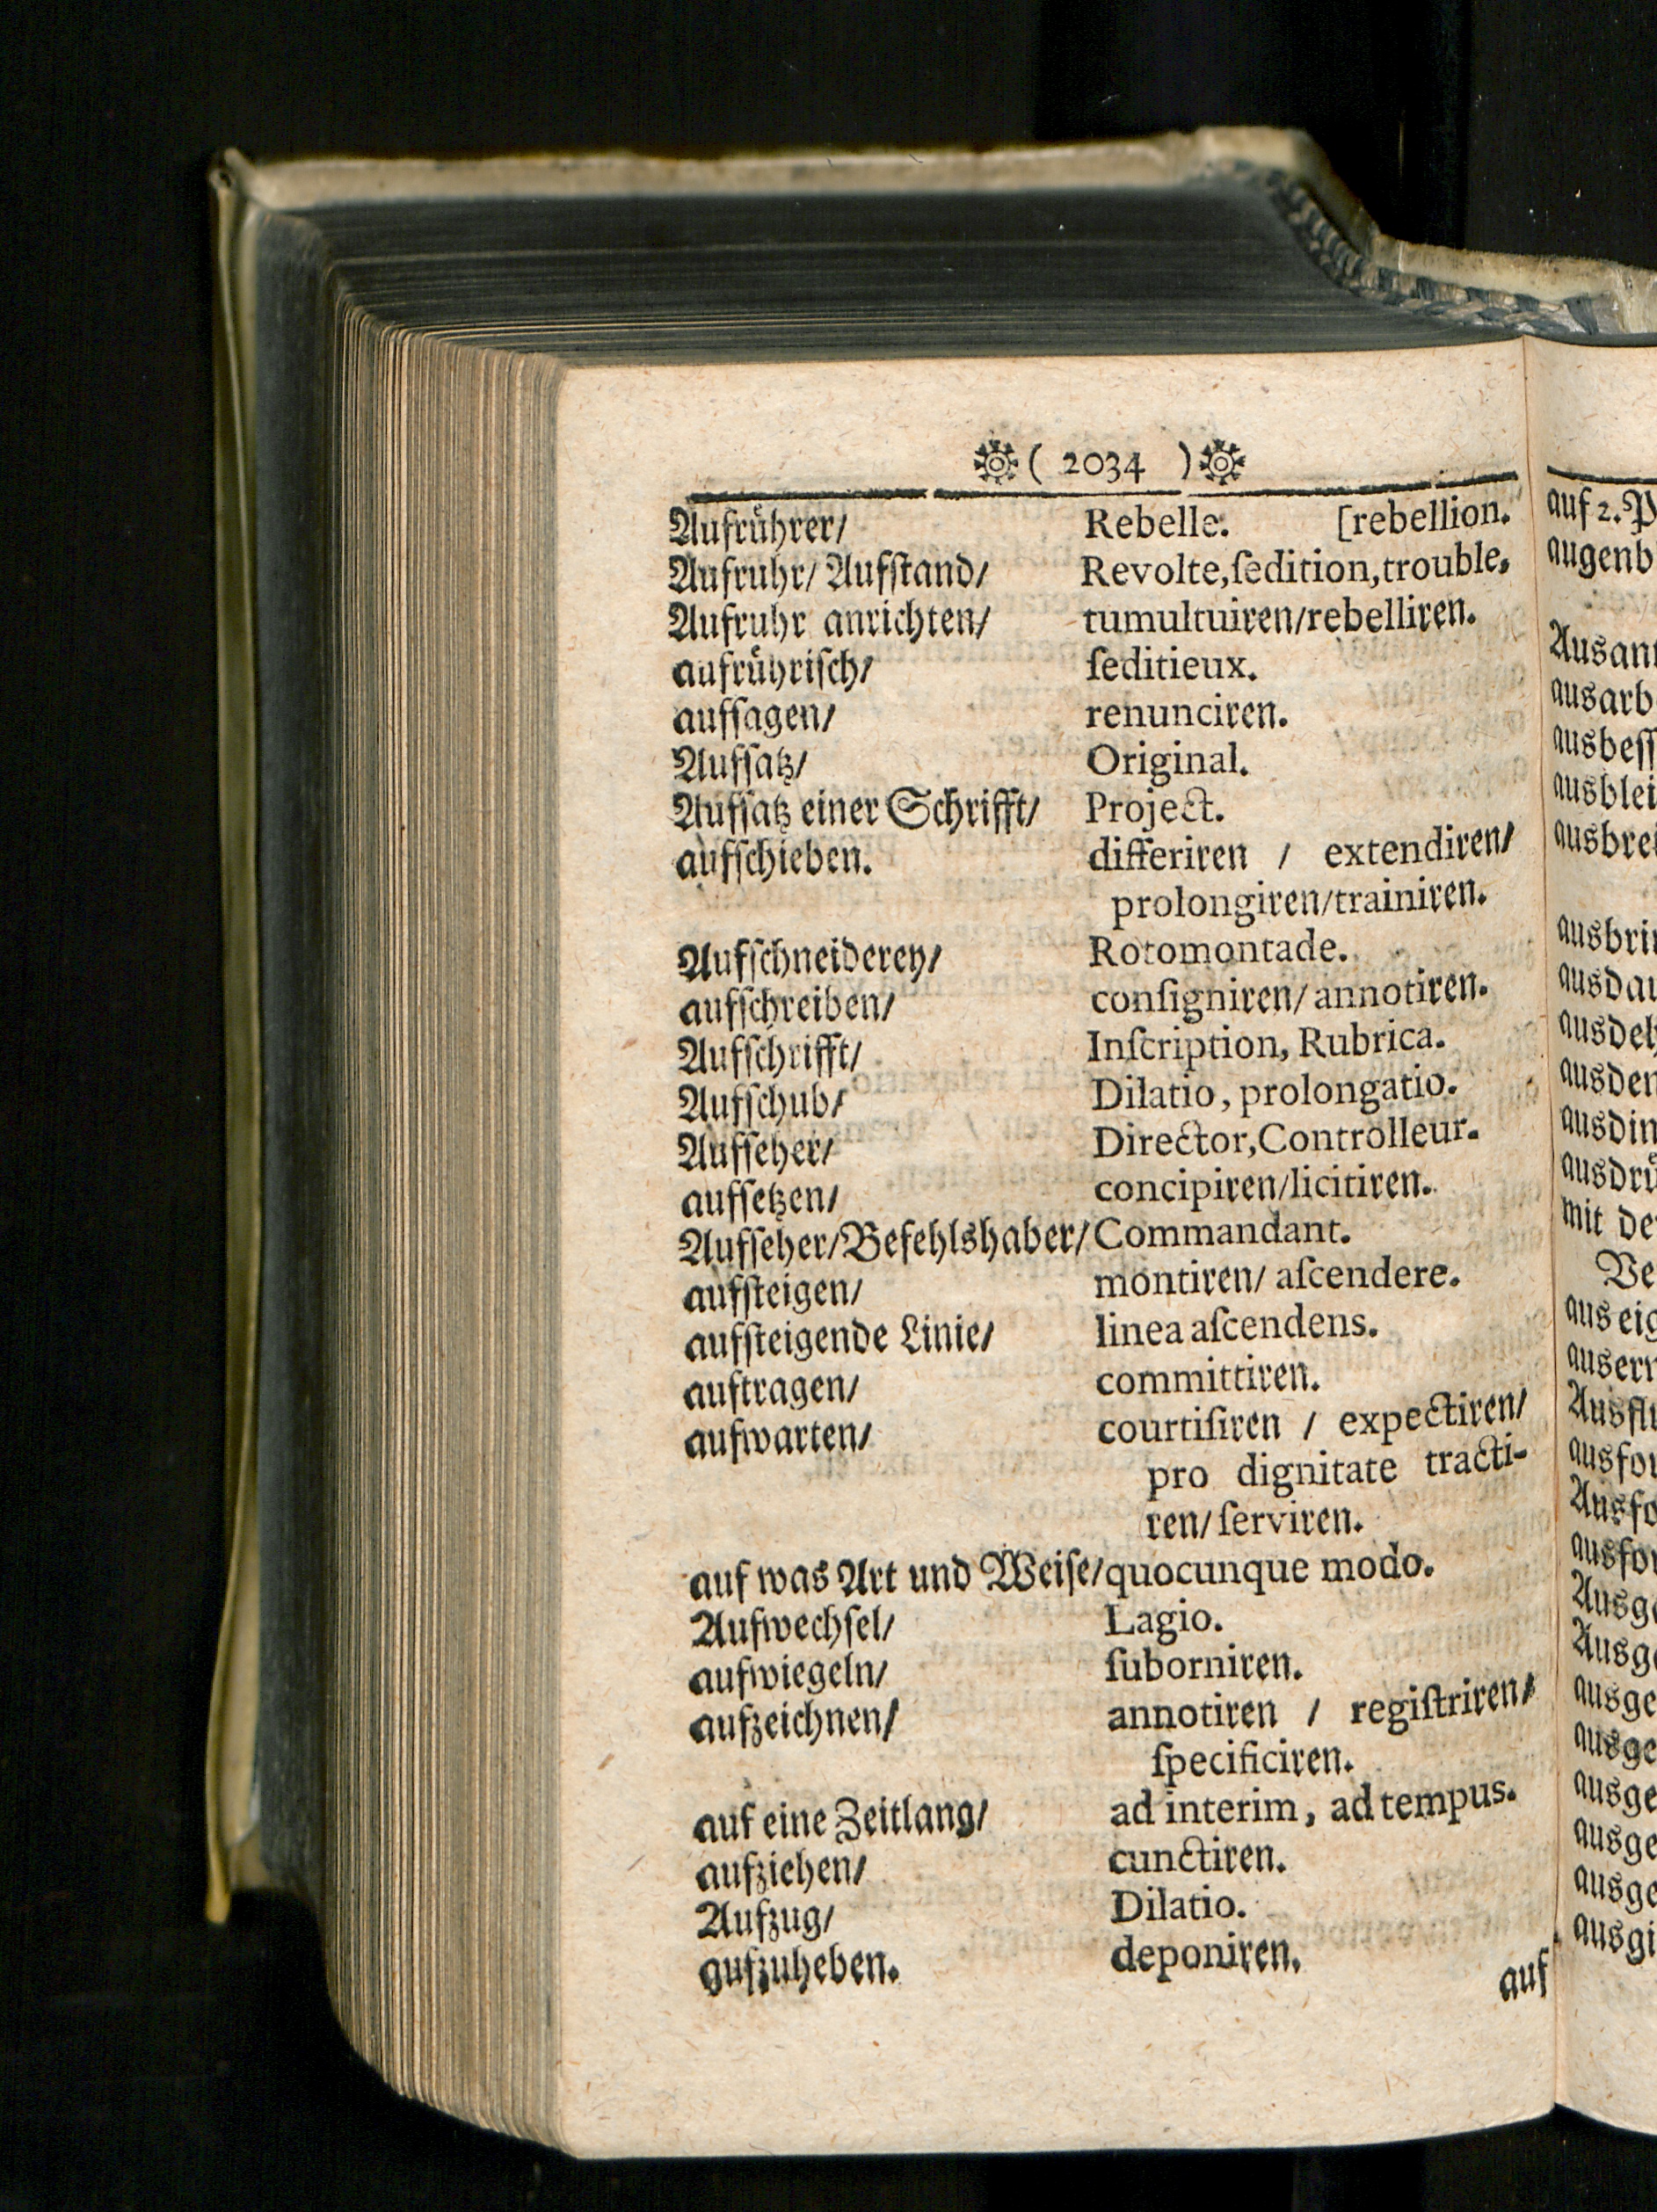 ( 2034 )
Aufrührer/ Rebelle. [rebellion.
Aufruhr/ Aufſtand/ Revolte,ſedition,trouble,
Aufruhr anrichten/ tumultuiren/rebelliren.
aufrühriſch/ ſeditieux.
aufſagen/ renunciren.
Aufſatz/ Original.
Aufſatz einer Schrifft/ Project.
aufſchieben. differiren / extendiren/
prolongiren/trainiren.
Aufſchneiderey/ Rotomontade.
aufſchreiben/ conſigniren/ annotiren.
Aufſchrifft/ Inſcription, Rubrica.
Aufſchub/ Dilatio, prolongatio.
Aufſeher/ Director,Controlleur.
aufſetzen/ concipiren/licitiren.
Aufſeher/Befehlshaber/ Commandant.
aufſteigen/ montiren/ aſcendere.
aufſteigende Linie/ linea aſcendens.
auftragen/ committiren.
aufwarten/ courtiſiren / expectiren/
pro dignitate tracti-
ren/ ſerviren.
auf was Art und Weiſe/ quocunque modo.
Aufwechſel/ Lagio.
aufwiegeln/ ſuborniren.
aufzeichnen/ annotiren / regiſtriren/
ſpecificiren.
auf eine Zeitlang/ ad interim, ad tempus.
aufziehen/ cunctiren.
Aufzug/ Dilatio.
aufzuheben. deponiren.
auf
auf 2. P
augenb
Ausant
ausarb
ausbeſſ
ausblei
ausbrei
ausbrin
ausdau
ausdeh
ausden
ausdin
ausdrü
mit de
Ve
aus eig
auserr
Ausflu
ausfor
Ausfo
ausfor
Ausge
Ausge
ausge
ausge
ausge
ausge
ausge
ausgi